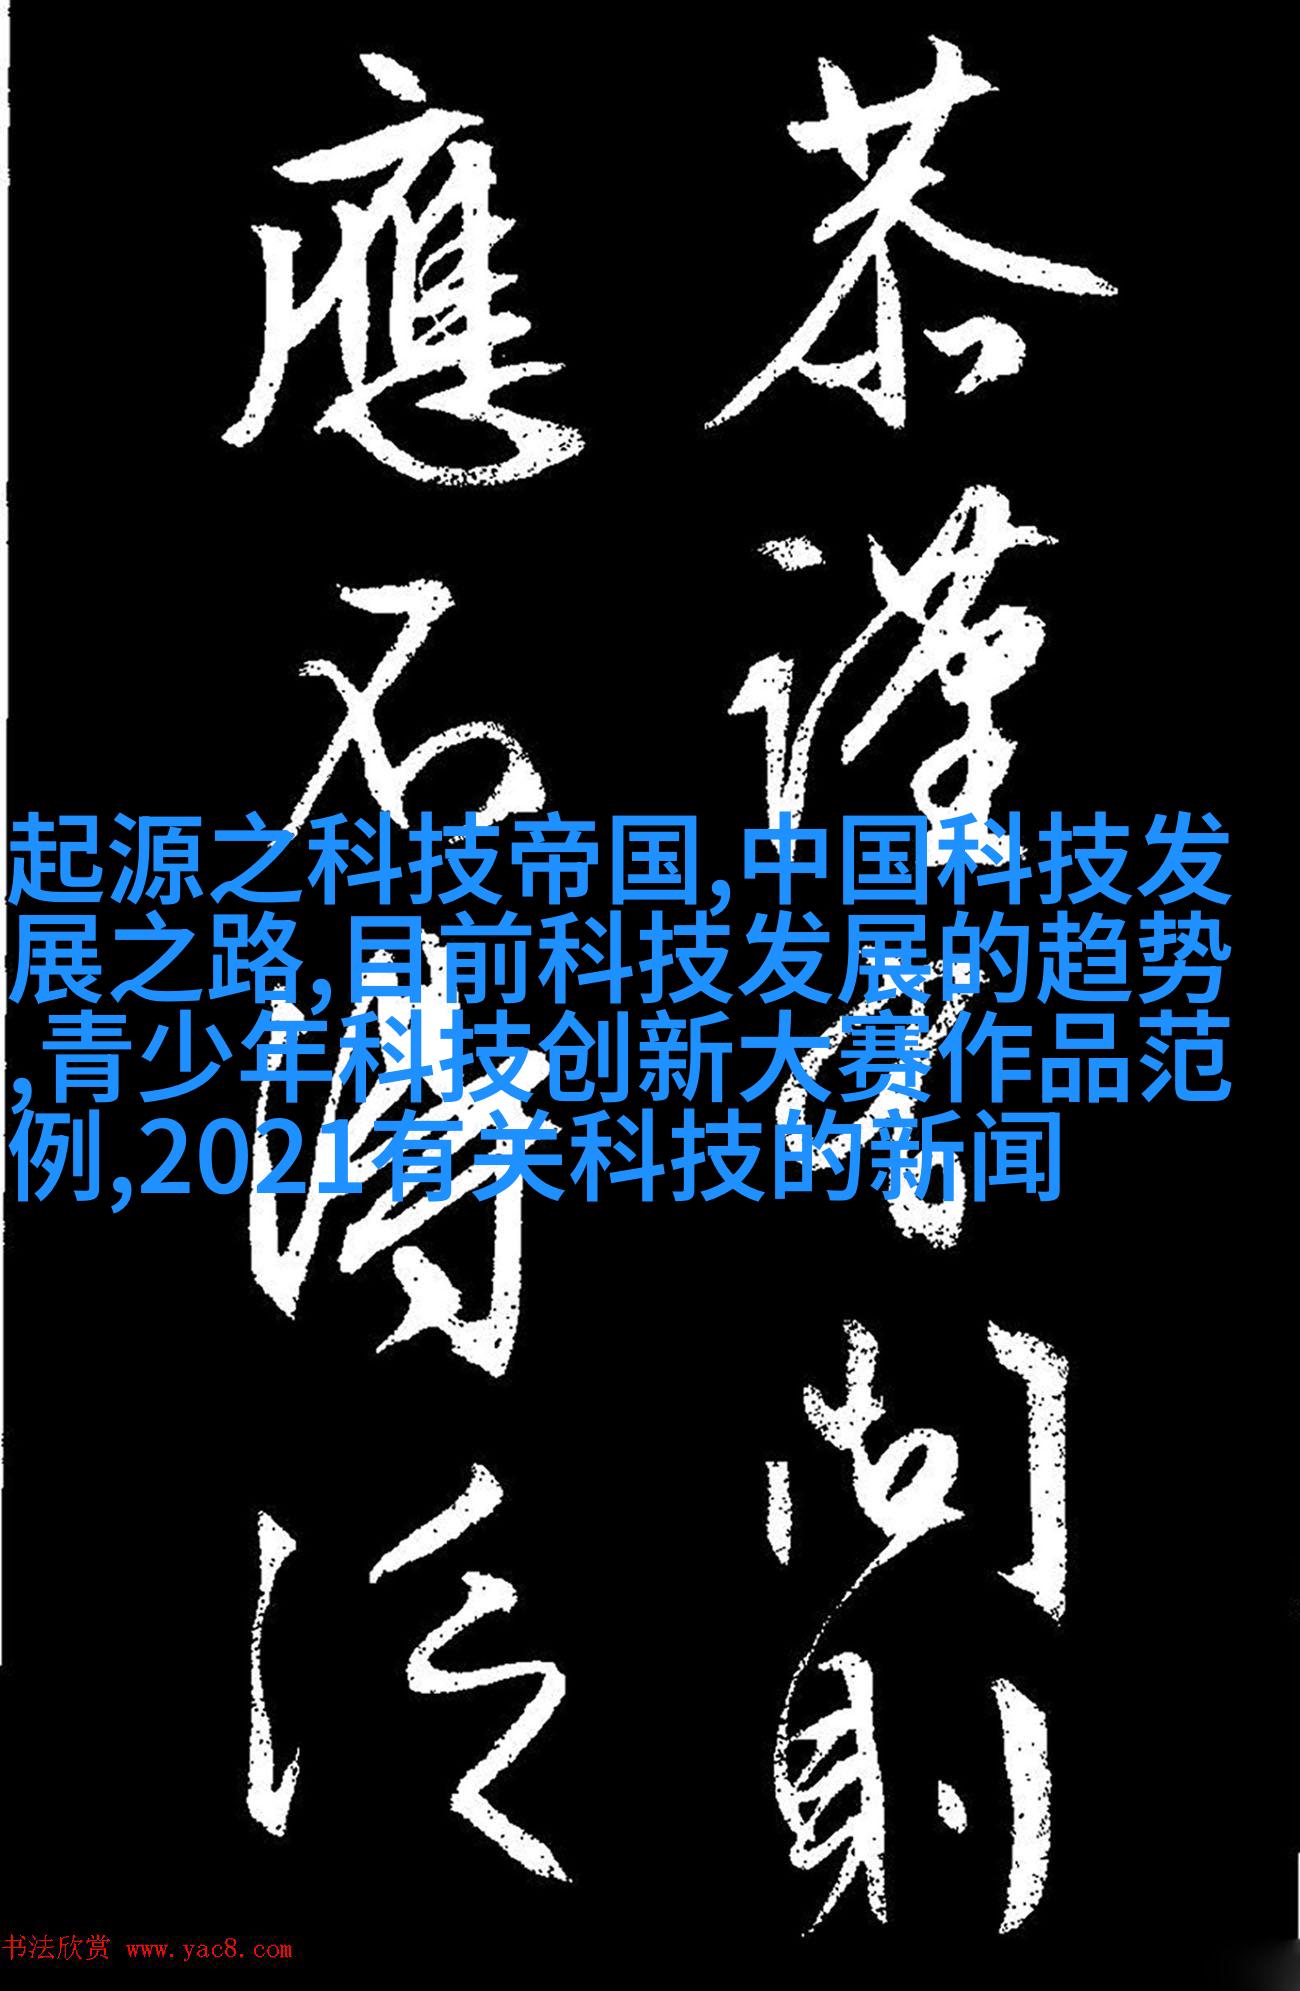 恭謹則
應
起源之科技帝国,中国科技发
展之路,目前科技发展的趋势
,青少年科技创新大赛作品范
例,2021有关科技的新闻
书法欣赏 www.yac8.com